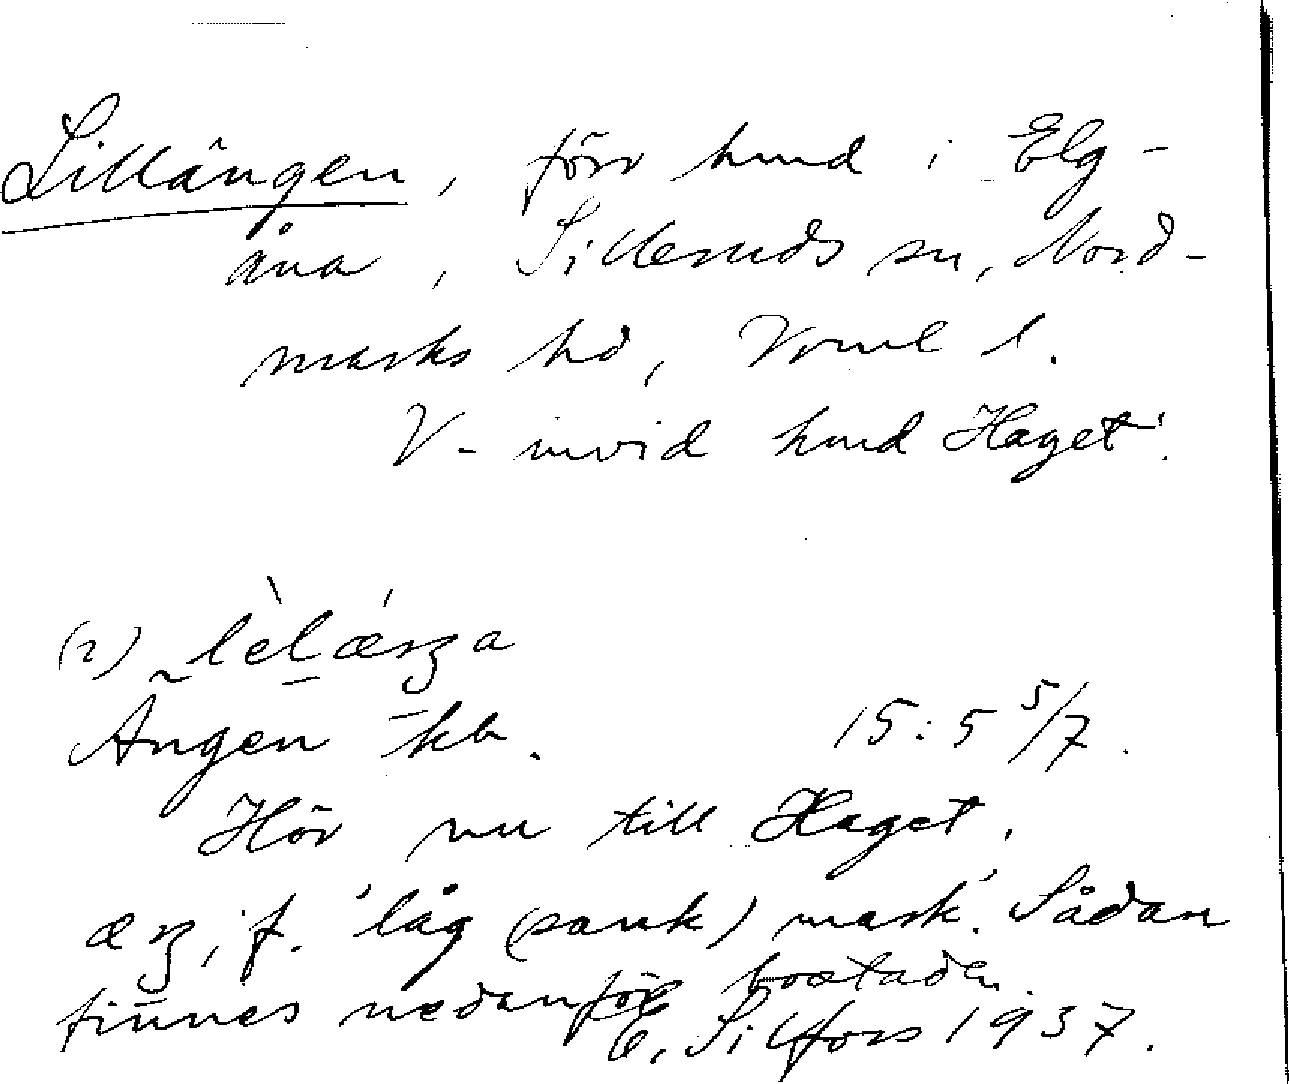 Lillängen, förr hmd i Elg-
åna, Silleruds sn, Nord-
marks hd, Vrml l.
V- invid hmd Haget.
(2) lèlǽŋa
Ängen kb. 15:5 5/7.
Hör nu till Haget.
æŋ, f. 'låg (sank) mark'. Sådan
finnes nedanför bostaden.
E. Silfors 1937.